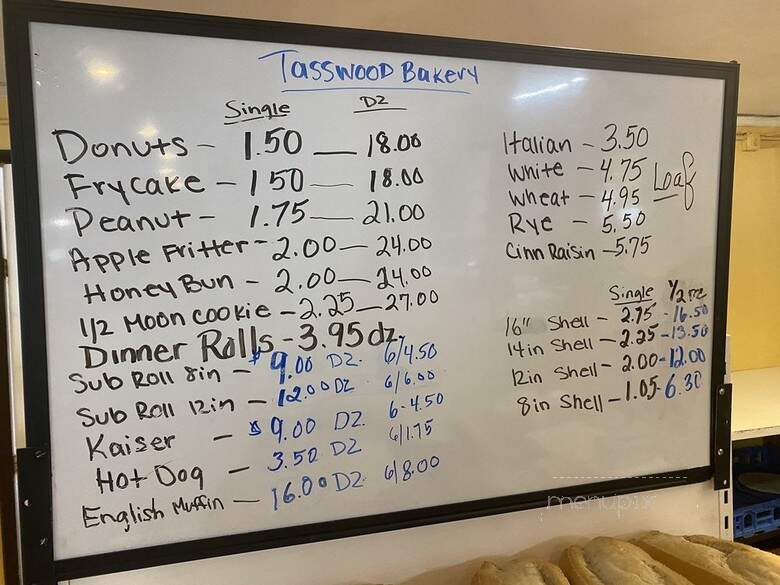 Tasswood Bakery
Single DZ
Donuts - 1.50 — 18.00
Frycake - 1 50 — 18.00
Peanut - 1.75 — 21.00
Apple Fritter - 2.00 — 24.00
Honey Bun - 2.00 — 24.00
1/2 Moon Cookie - 2.25 — 27.00
Dinner Rolls - 3.95 dz.
Sub Roll 8in - $9.00 DZ 6/4.50
Sub Roll 12in - 12.00 DZ 6/6.00
Kaiser - $9.00 DZ 6-4.50
Hot Dog - 3.50 DZ 6/1.75
English Muffin - 16.00 DZ 6/8.00
Italian - 3.50
White - 4.75
Loaf
Wheat - 4.95
Rye - 5.50
Cinn Raisin - 5.75
Single 1/2 DZ
16" Shell - 2.75 - 16.50
14in Shell - 2.25 - 13.50
12in Shell - 2.00 - 12.00
8in Shell - 1.05 - 6.30
menupix